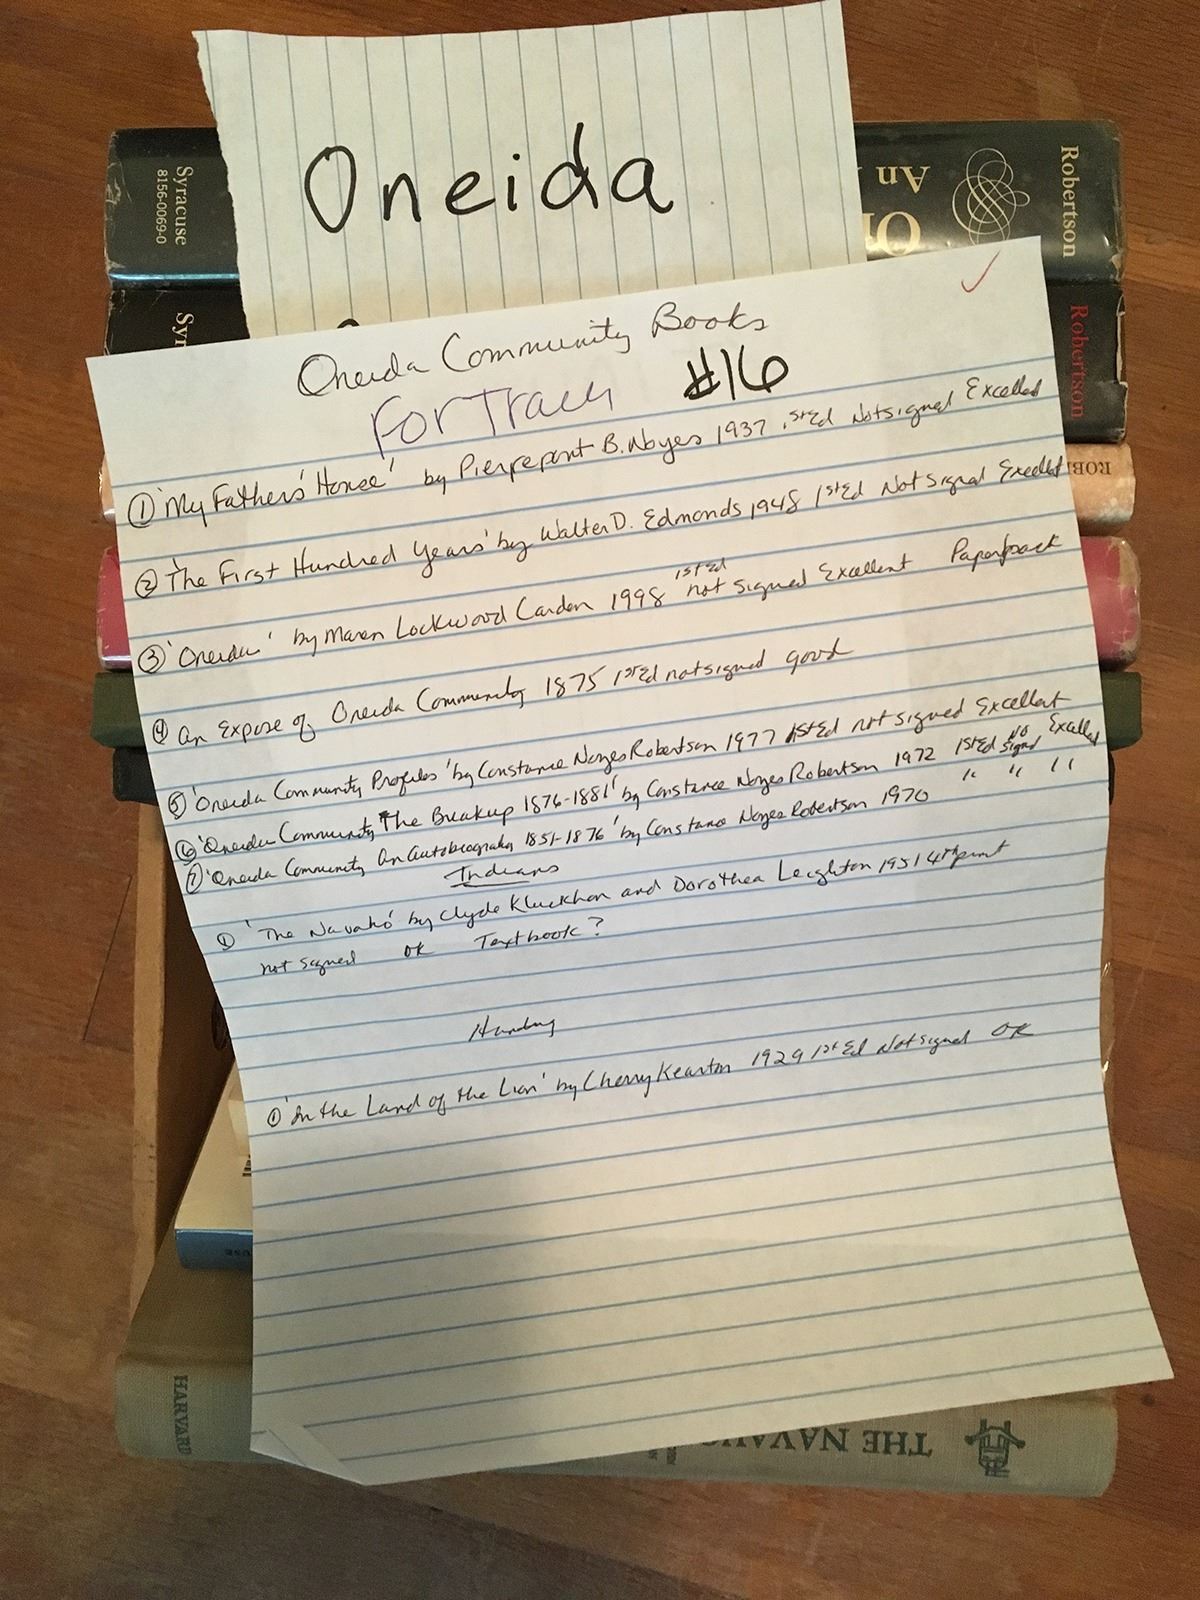 Oneida
Syracuse
8156-0069-0
An
Robertson
Syr
Robertson
Oneida Community Books
For Tracy #16
① 'My Fathers' House' by Pierrepont B. Noyes 1937 1st Ed Not signed Excellent
② 'The First Hundred Years' by Walter D. Edmonds 1948 1st Ed Not Signed Excellent
③ 'Oneida' by Maren Lockwood Carden 1998 1st Ed not signed Excellent Paperback
④ An Expose of Oneida Community 1875 1st Ed not signed good
⑤ 'Oneida Community Profiles' by Constance Noyes Robertson 1977 1st Ed not signed Excellent
⑥ 'Oneida Community The Breakup 1876-1881' by Constance Noyes Robertson 1972 1st Ed no signed Excellent
⑦ 'Oneida Community An Autobiography 1851-1876' by Constance Noyes Robertson 1970 " " "
Indians
① 'The Navaho' by Clyde Kluckhon and Dorothea Leighton 1951 4th print
not signed OK Textbook?
Hunting
① 'In the Land of the Lion' by Cherry Kearton 1929 1st Ed Not signed OK
HARVARD
THE NAVAHO